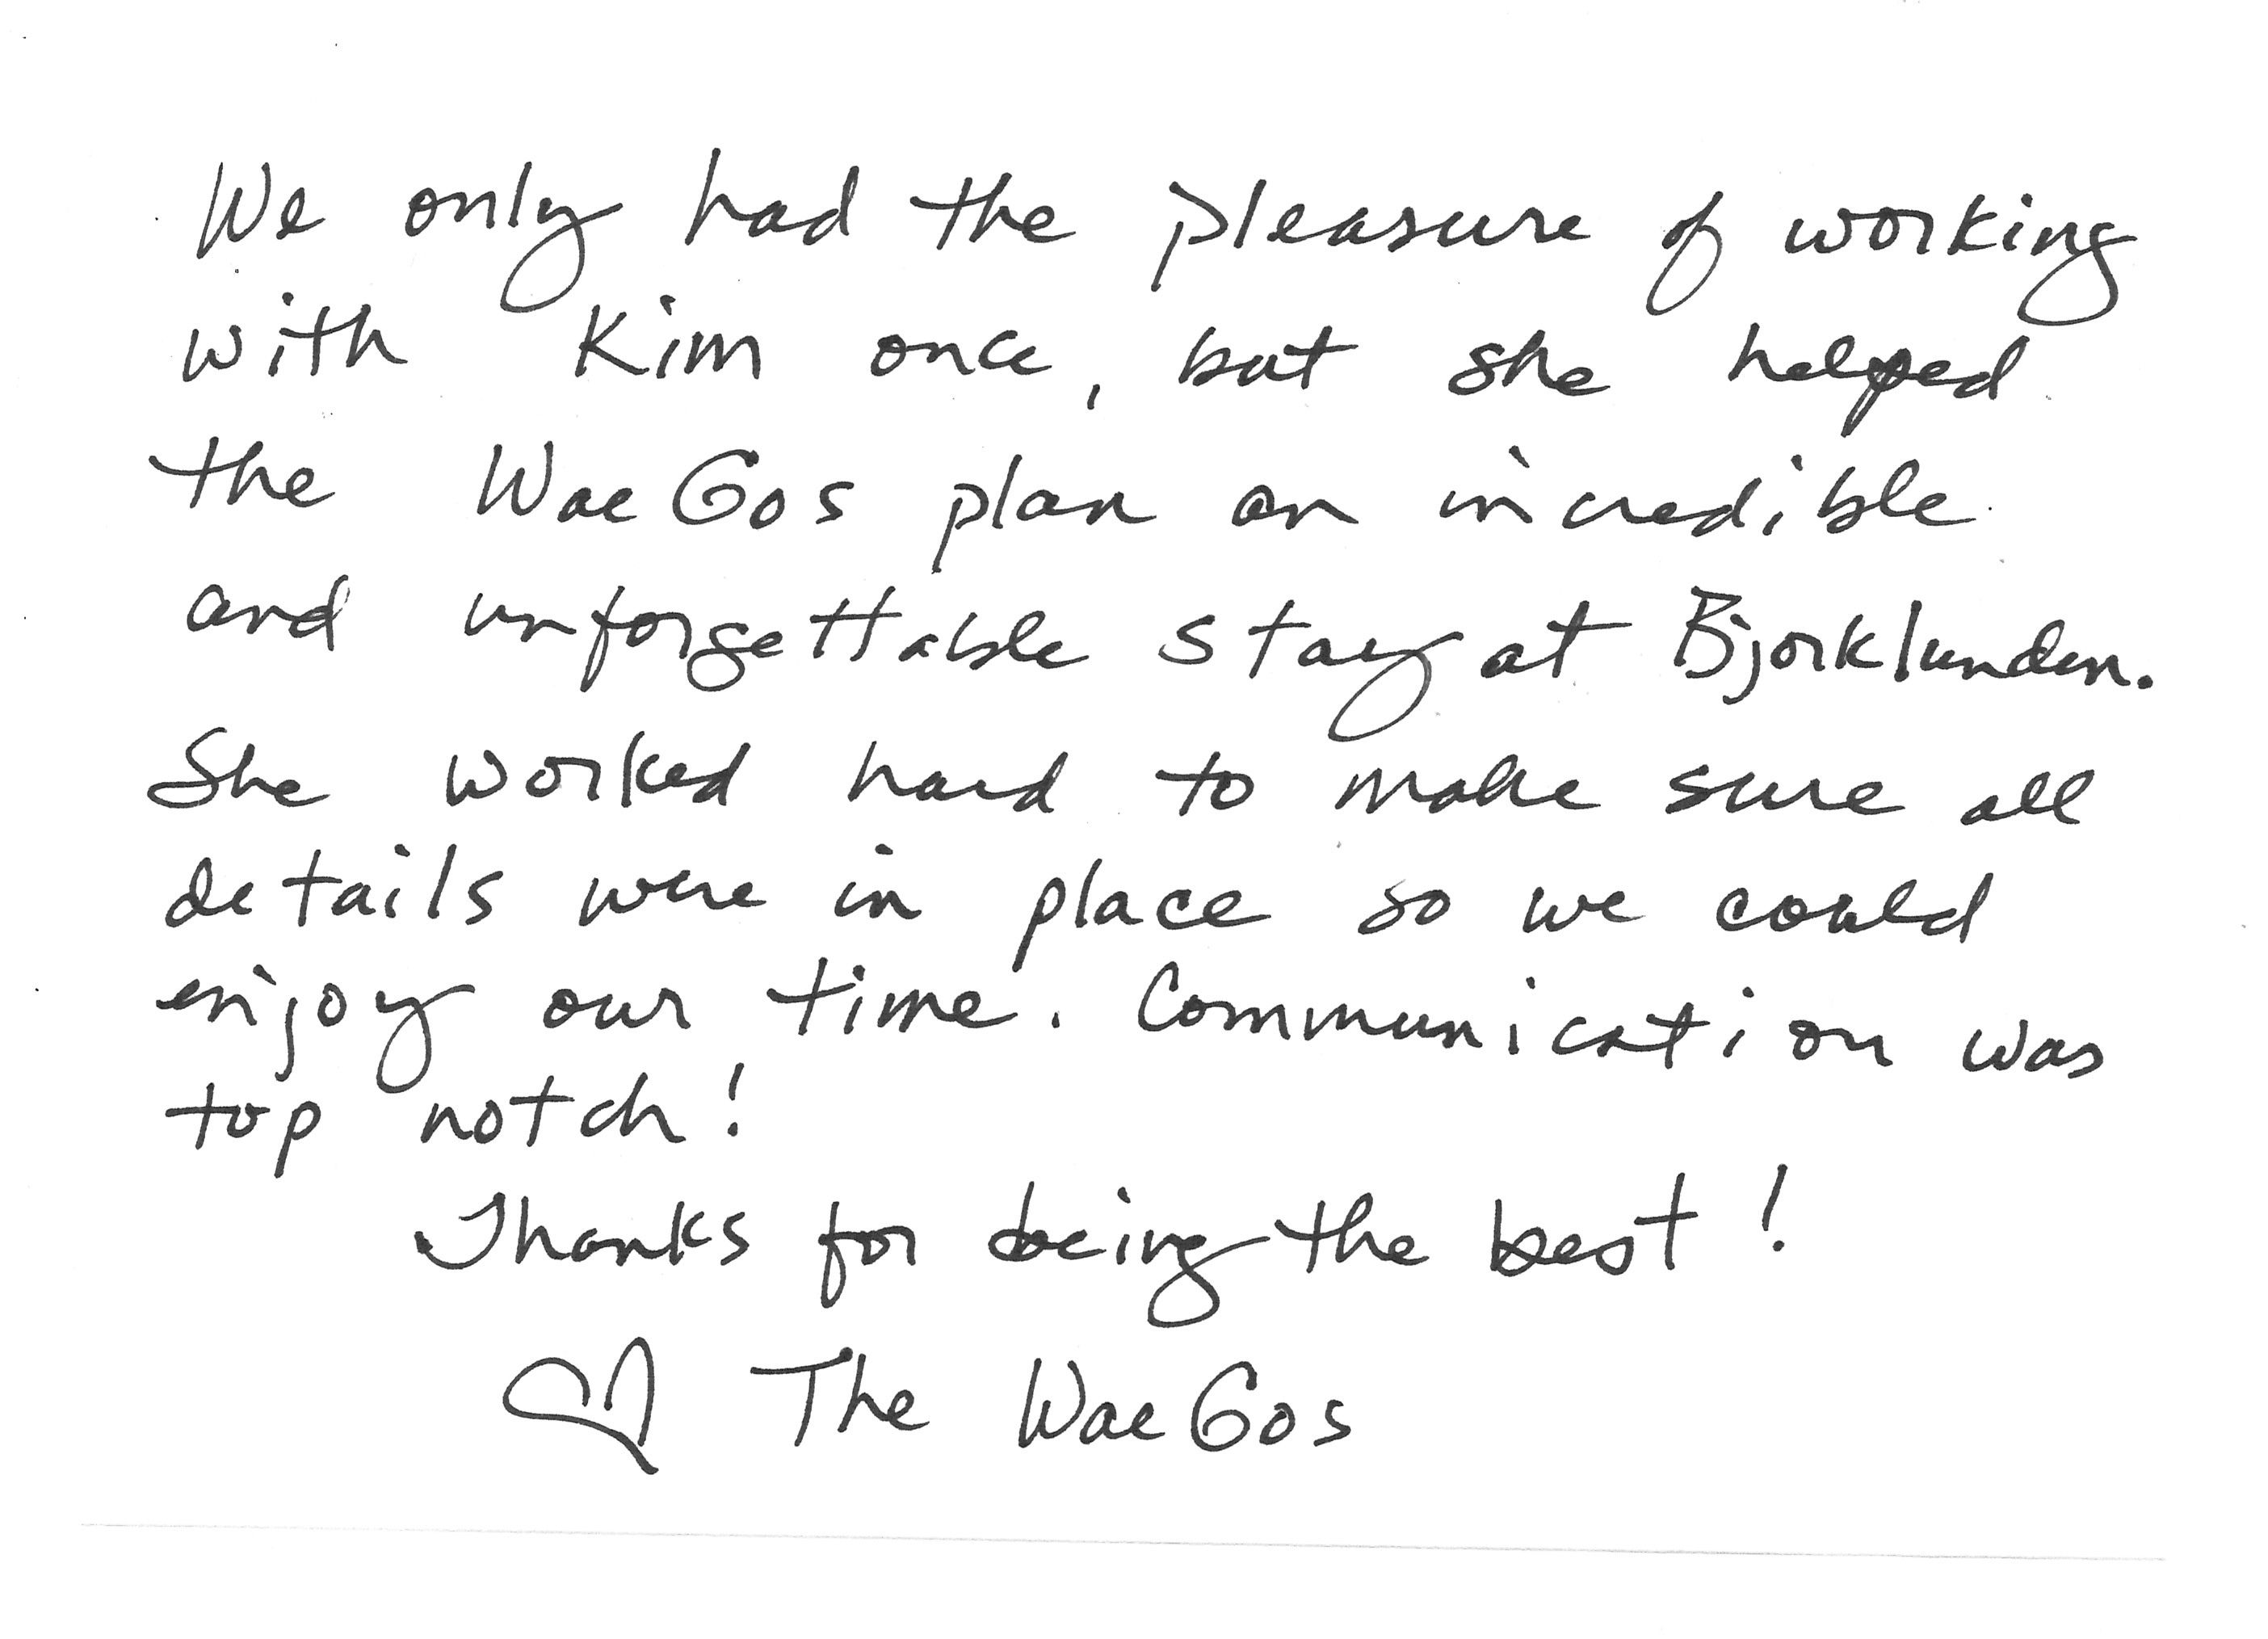 We only had the pleasure of working
with Kim once, but she helped
the WaeGos plan an incredible
and unforgettable stay at Bjorklunden.
She worked hard to make sure all
details were in place so we could
enjoy our time. Communication was
top notch!
Thanks for being the best!
♡ The WaeGos